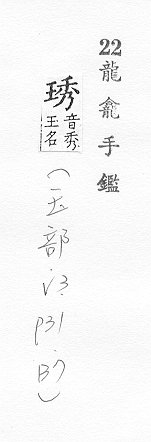 22 龍龕手鑑
琇 音秀玉名
(玉部.V3.P31.B7)